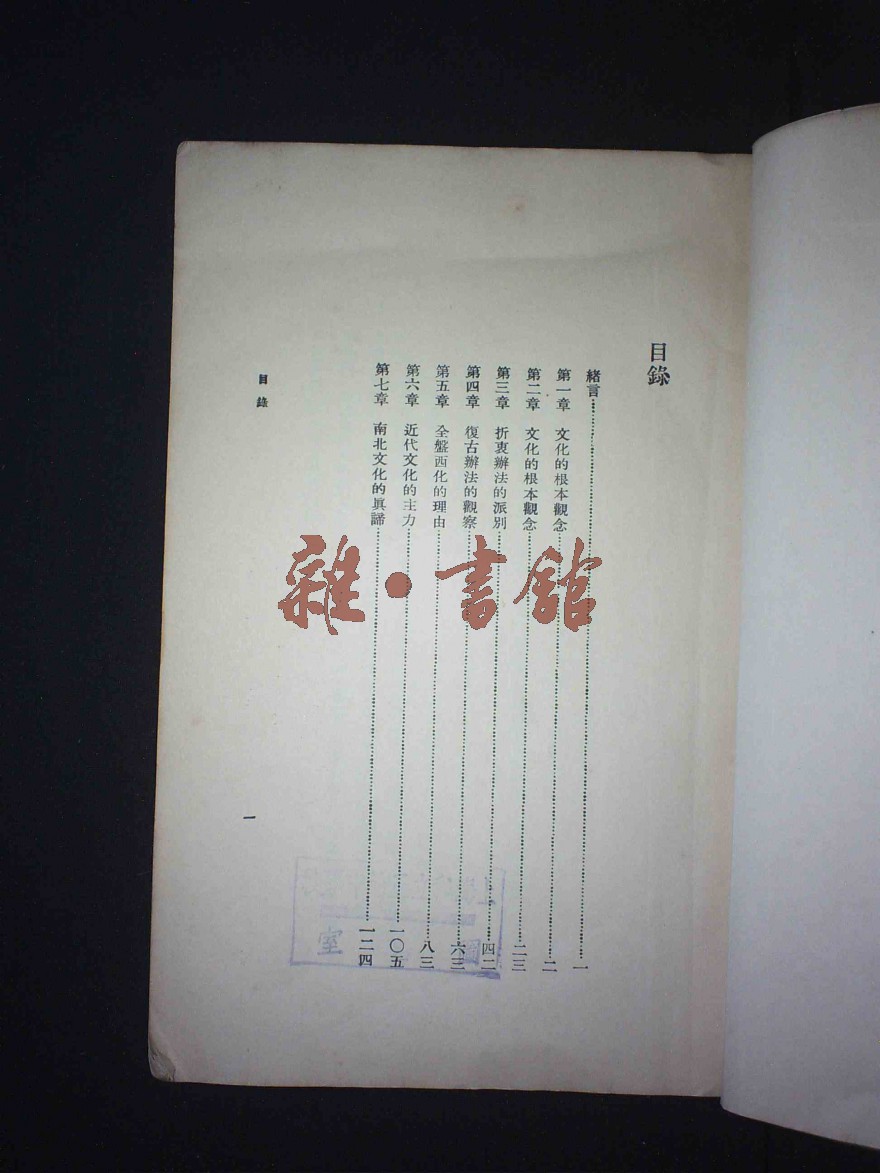 目錄
緒言……一
第一章 文化的根本觀念……二
第二章 文化的根本觀念……二三
第三章 折衷辦法的派別……四二
第四章 復古辦法的觀察……六三
第五章 全盤西化的理由……八三
第六章 近代文化的主力……一〇五
第七章 南北文化的眞諦……一二四
目錄
一
雜·書館
室